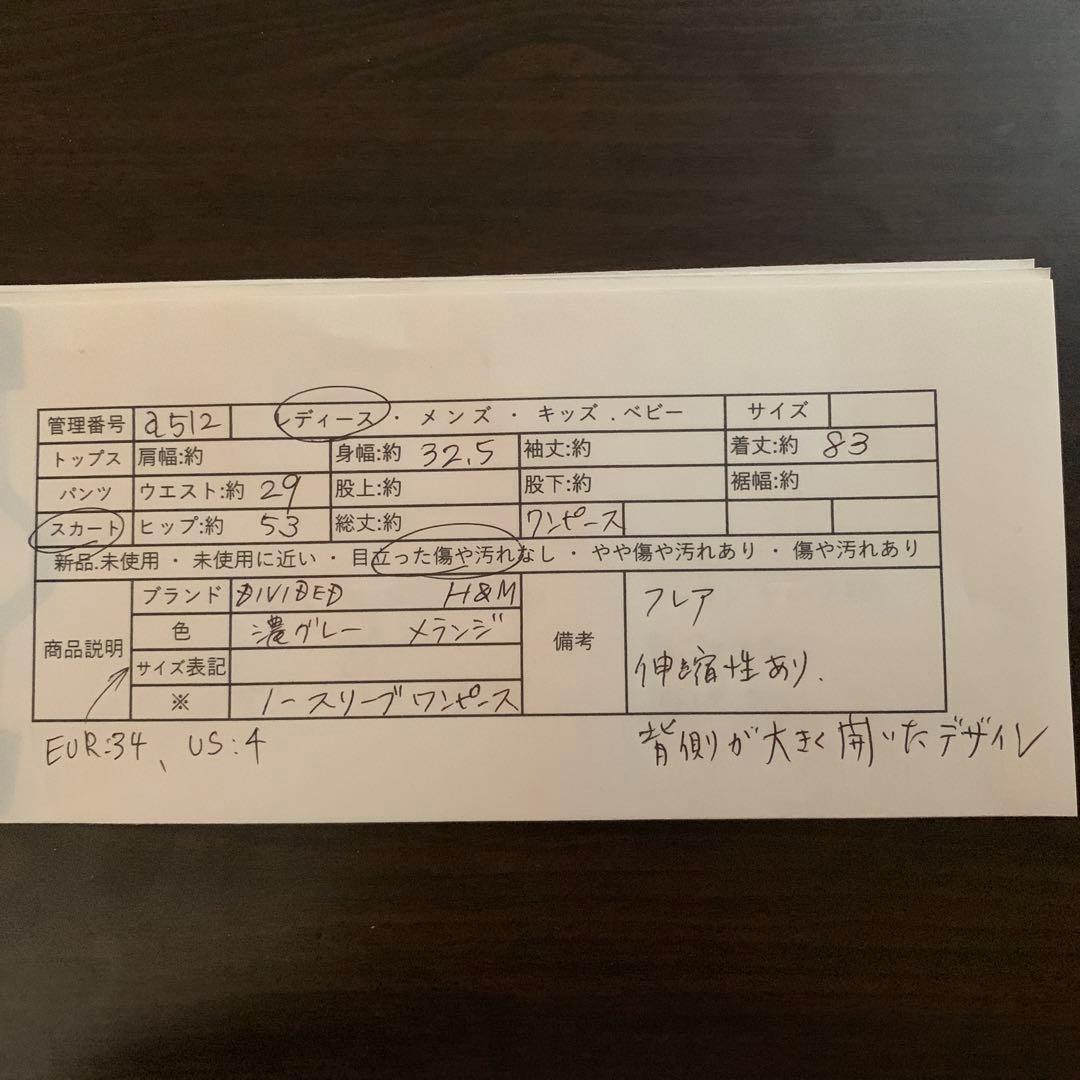 管理番号 a512 レディース・メンズ・キッズ.ベビー サイズ
トップス 肩幅:約 身幅:約 32.5 袖丈:約 着丈:約 83
パンツ ウエスト:約 29 股上:約 股下:約 裾幅:約
スカート ヒップ:約 53 総丈:約 ワンピース
新品.未使用・未使用に近い・目立った傷や汚れなし・やや傷や汚れあり・傷や汚れあり
商品説明 ブランド DIVIDED H&M 備考 フレア
色 濃グレー メランジ
サイズ表記 伸縮性あり.
※ ノースリーブワンピース
EUR:34、US:4 背側が大きく開いたデザイン